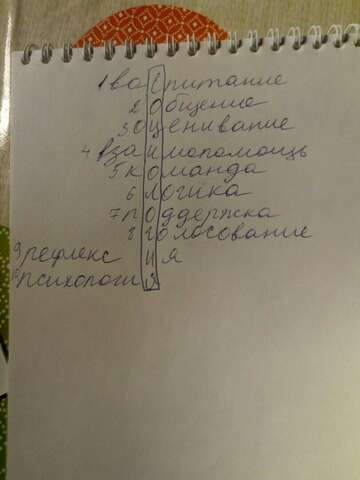 1 воспитание
2 общение
3 оценивание
4 взаимопомощь
5 команда
6 логика
7 поддержка
8 голосование
9 рефлексия
10 психология